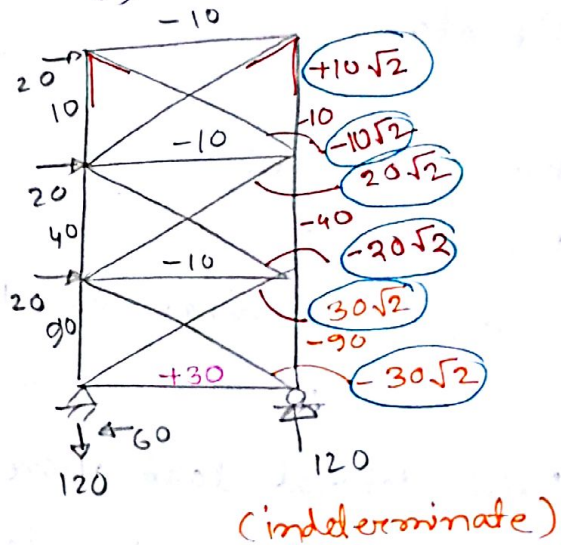 -10
20
+10√2
10
-10
-10√2
-10
20√2
20
-40
40
-20√2
-10
20
30√2
90
-90
+30
-30√2
60
120
120
(indeterminate)